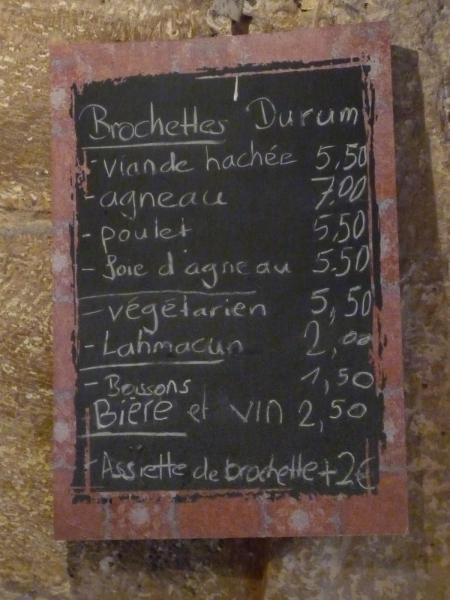 Brochettes Durum
- viande hachée 5,50
- agneau 7.00
- poulet 5,50
- foie d'agneau 5.50
- végétarien 5,50
- Lahmacun 2,00
- Boissons 1,50
Bière et vin 2,50
- Assiette de brochette +2€